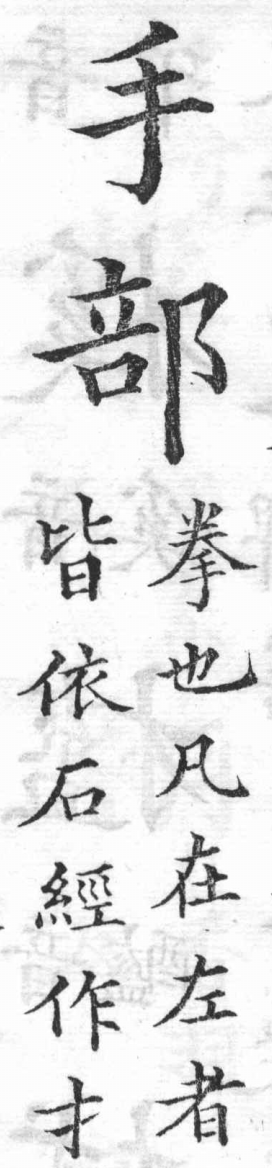 手部
拳也凡在左者
皆依石經作扌